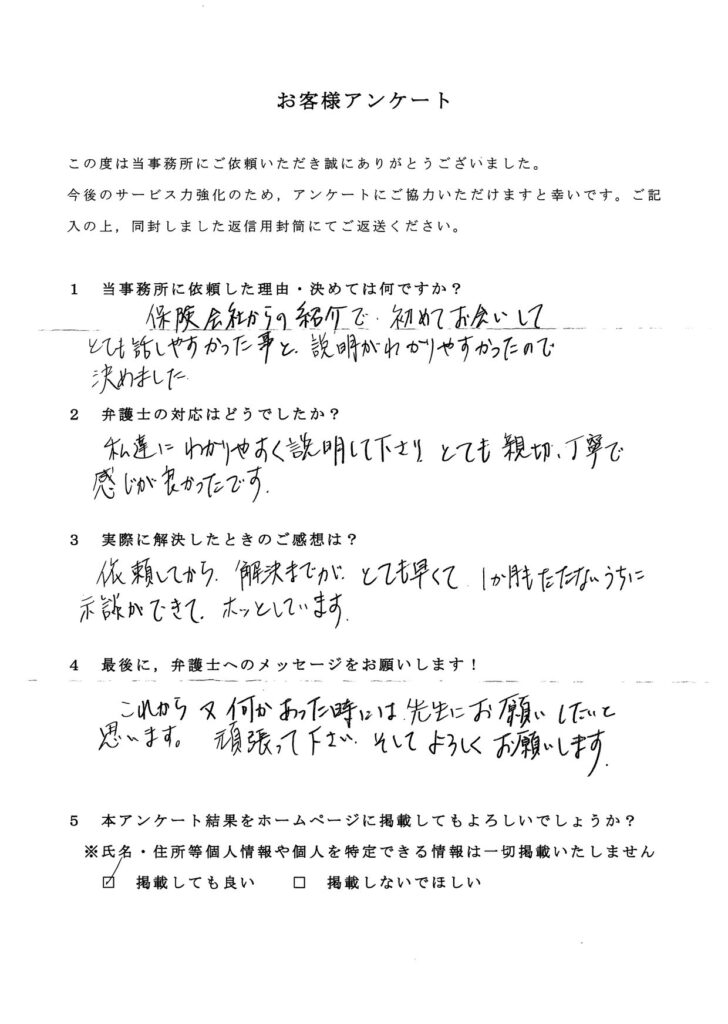 お客様アンケート
この度は当事務所にご依頼いただき誠にありがとうございました。
今後のサービス力強化のため，アンケートにご協力いただけますと幸いです。ご記
入の上，同封しました返信用封筒にてご返送ください。
1 当事務所に依頼した理由・決めては何ですか？
保険会社からの紹介で、初めてお会いして
とても話しやすかった事と、説明がわかりやすかったので
決めました
2 弁護士の対応はどうでしたか？
私達にわかりやすく説明して下さり、とても親切、丁寧で
感じが良かったです。
3 実際に解決したときのご感想は？
依頼してから、解決までが、とても早くて、1か月もたたないうちに
示談ができて、ホッとしています。
4 最後に，弁護士へのメッセージをお願いします！
これから又何かあった時には、先生にお願いしたいと
思います。頑張って下さい。そしてよろしくお願いします。
5 本アンケート結果をホームページに掲載してもよろしいでしょうか？
※氏名・住所等個人情報や個人を特定できる情報は一切掲載いたしません
☑ 掲載しても良い □ 掲載しないでほしい